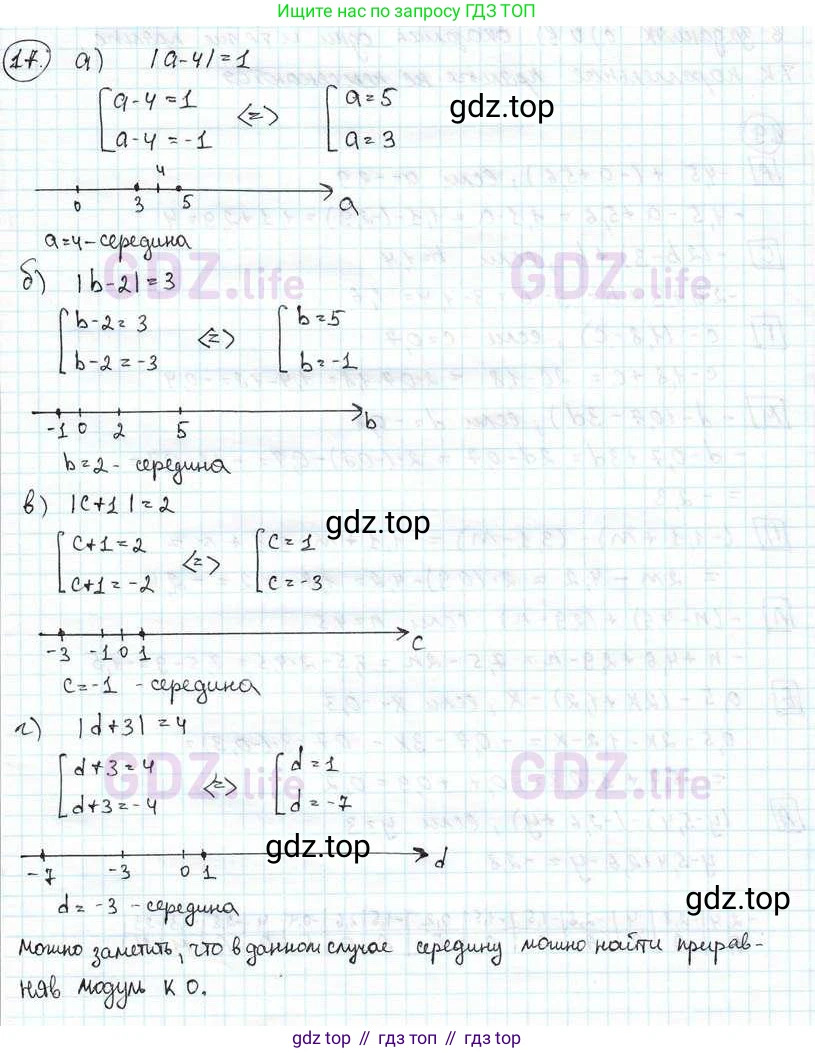 Ищи ответы по запросу ГДЗ ТОП
17. а) |a-4|=1
a-4=1 <=> a=5
a-4=-1 a=3
gdz.top
4
0 3 5 a
a=4-середина
GDZ.life GDZ.life
б) |b-2|=3
b-2=3 <=> b=5
b-2=-3 b=-1
-1 0 2 5 b
b=2 - середина
в) |c+1|=2
gdz.top
c+1=2 <=> c=1
c+1=-2 c=-3
-3 -1 0 1 c
c=-1 - середина
г) |d+3|=4
GDZ.life GDZ.life
d+3=4 <=> d=1
d+3=-4 d=-7
gdz.top
-7 -3 0 1 d
d=-3 - середина
gdz.top
можно заметить, что в данном случае середину можно найти прирав-
няв модуль к 0.
gdz.top // гдз топ // gdz.top // гдз топ // gdz.top